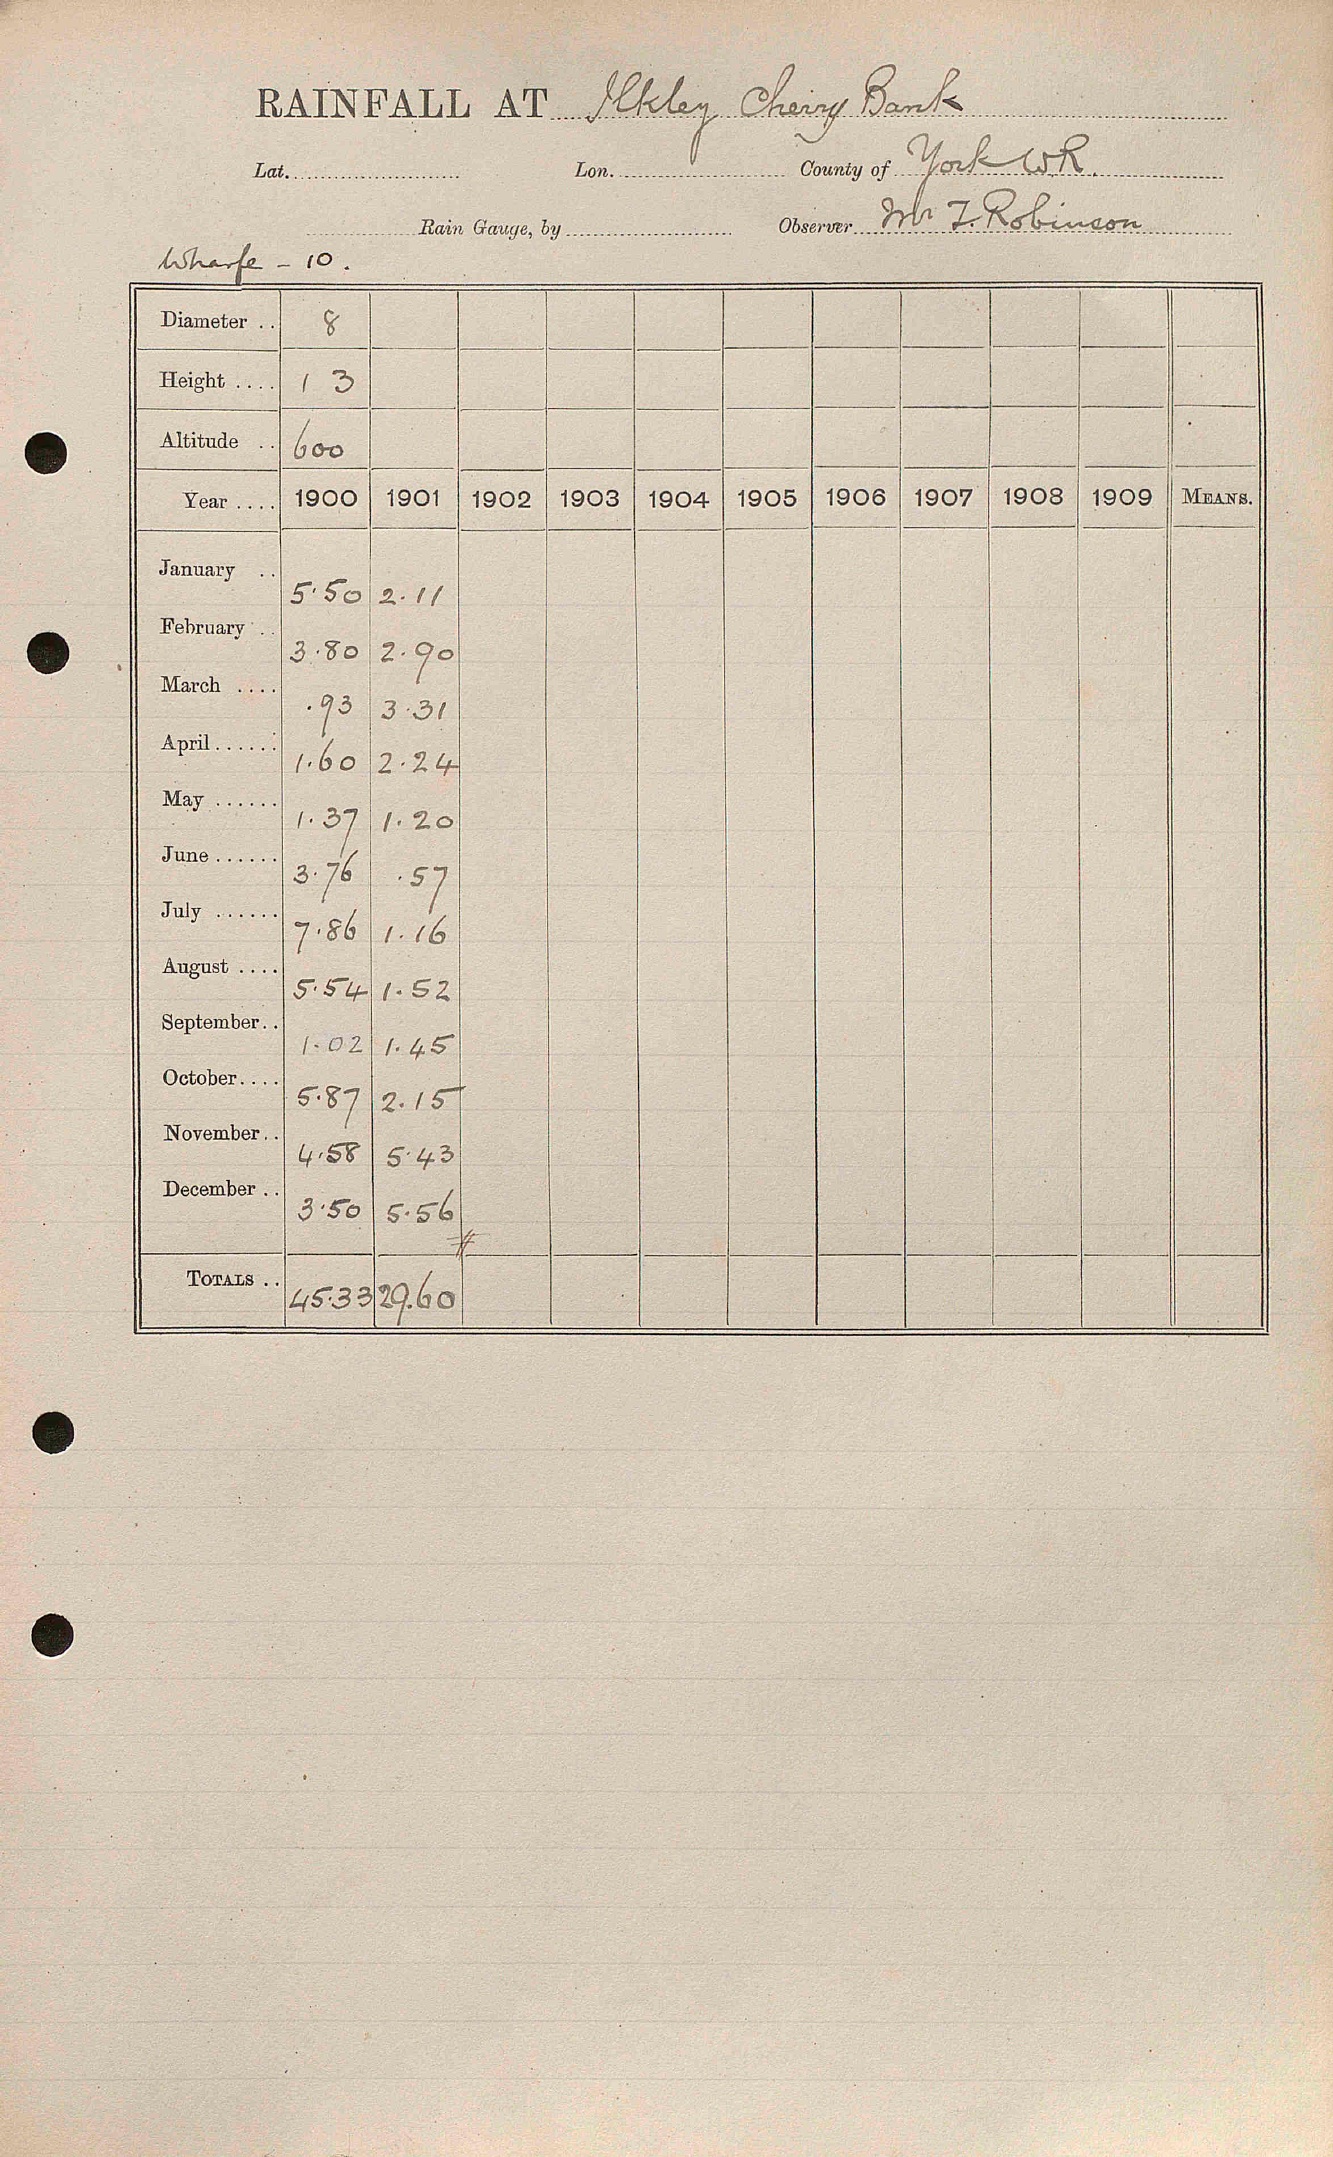 RAINFALL AT Ilkley Cherry Bank
Lat. Lon. County of York WR.
Rain Gauge, by Observer Mr F. Robinson
Wharfe - 10.
Diameter .. 8
Height .... 1 3
Altitude .. 600
Year .... 1900 1901 1902 1903 1904 1905 1906 1907 1908 1909 MEANS.
January .. 5.50 2.11
February .. 3.80 2.90
March .... .93 3.31
April...... 1.60 2.24
May ...... 1.37 1.20
June ...... 3.76 .57
July ...... 7.86 1.16
August .... 5.54 1.52
September.. 1.02 1.45
October.... 5.87 2.15
November.. 4.58 5.43
December .. 3.50 5.56
TOTALS .. 45.33 29.60